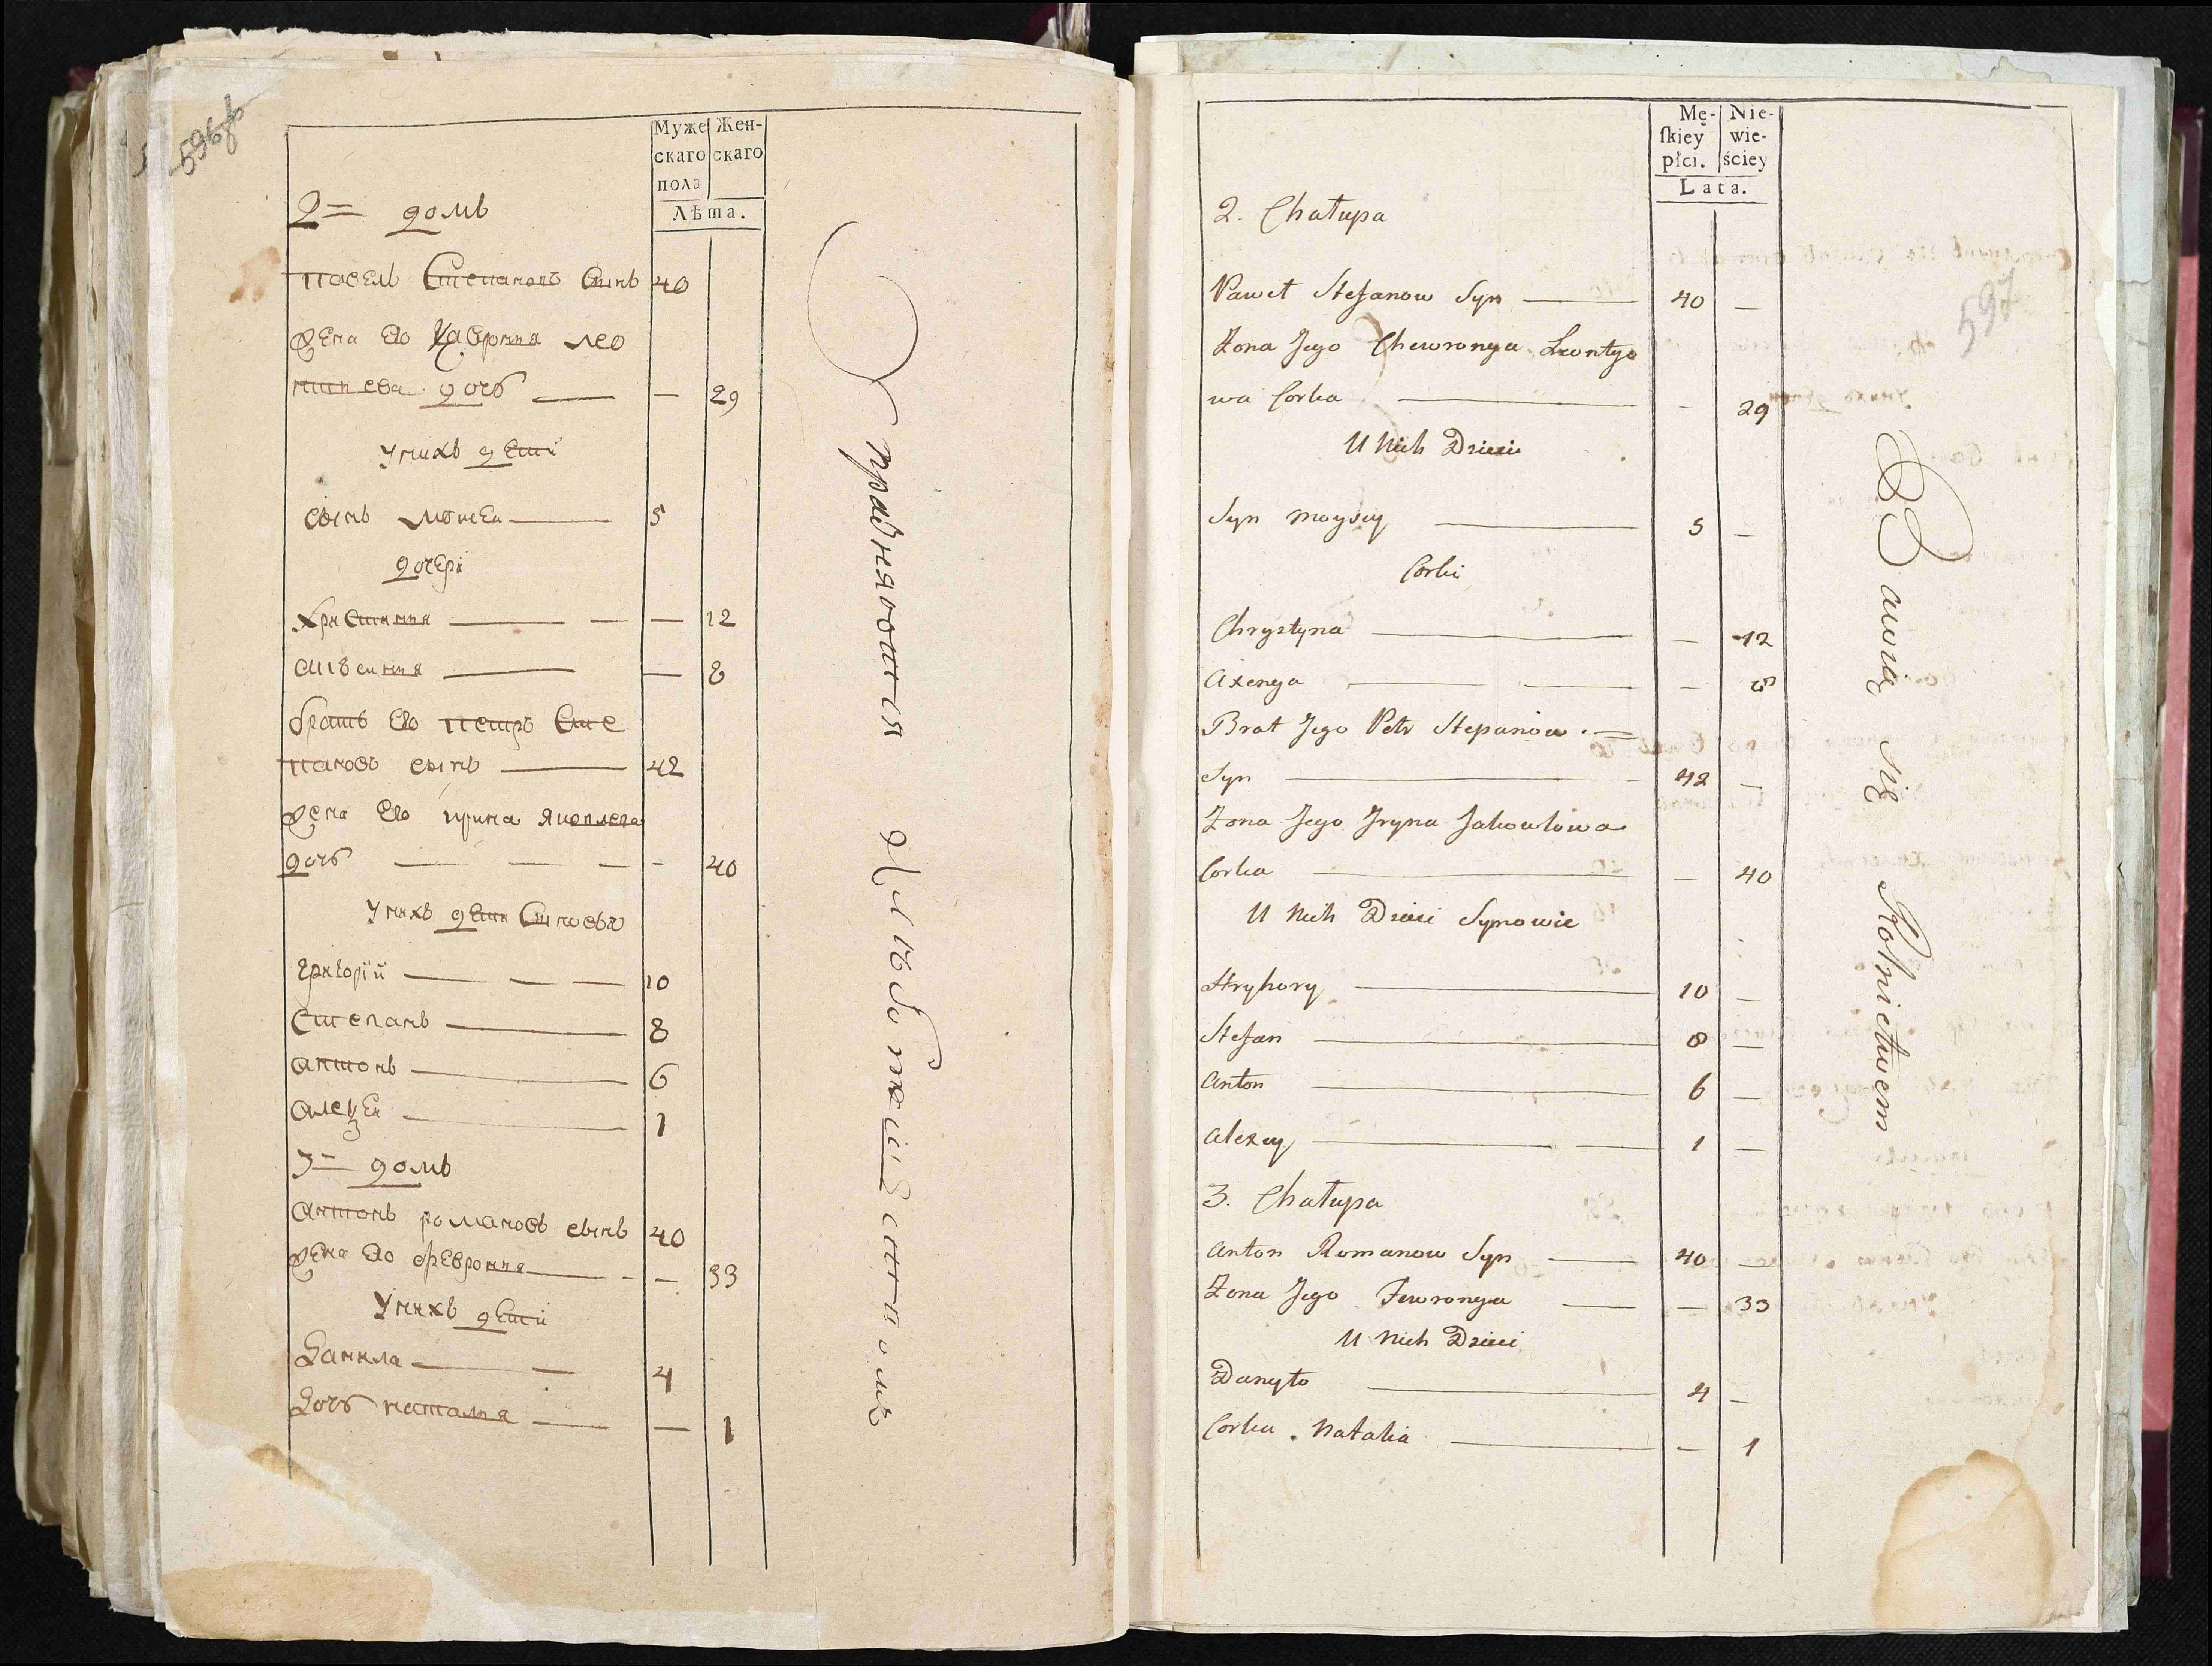 596об
Муже
скаго
пола
Жен-
скаго
Лѣта.
2= домъ
павелъ Степановъ Сынъ 40
жена Его Хаврония лео
нтиева дочь — 29
Унихъ дети
сынъ моисеи 5
дочери
Христиния — 12
— 8
братъ Его петръ Сте
пановъ сынъ 42
жена Его ирина Яковлева
дочь — 40
Унихъ дети Сыновъя
григорїй 10
Степанъ 8
антонъ 6
алеѯеи 1
3= домъ
антонъ романовъ сынъ 40
жена Его феврония — 33
Унихъ детй
Данила 4
Дочь наталия — 1
Упражняются хлебопашествомъ
597
Mę-
ſkiey
płci.
Nie-
wie-
ściey
Lata.
2. Chałupa
Paweł Stefanow Syn 40 —
Zona Jego Chewronya Leontyo
wa Corka — 29
U Nich Dzieci
Syn Moysey 5 —
Corki
Chrystyna — 12
Axenya — 8
Brat Jego Petr Stepanow
Syn 42 —
Zona Jego Jryna Jakowlowa
Corka — 40
U Nich Dzieci Synowie
Hryhory 10 —
Stefan 8 —
Anton 6 —
Alexey 1 —
3. Chałupa
Anton Romanow Syn 40 —
Zona Jego Fewronya — 33
U Nich Dzieci
Danyło 4 —
Corka Natalia — 1
Bawią się Rolnictwem